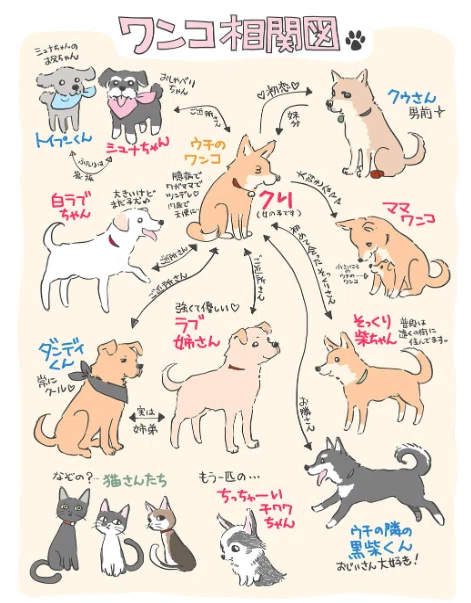 ワンコ相関図
シュナちゃんの
お兄ちゃん
おしゃべり
ちゃん
トイプーくん
シュナちゃん
ご近所さん
♡初恋♡
妹分
クウさん
男前
ウチの
ワンコ
臆病で
ワガママで
ツンデレ♡
クリ
(女の子です)
大きいけど
白ラブ
ちゃん
ママ
ワンコ
ご近所さん
ご近所さん
ご近所さん
強くて優しい♡
ラブ
姉さん
ダンディ
くん
常に
クール♡
実は
姉弟
そっくり
柴ちゃん
普段は
遠くの街に
住んでます。
お隣さん
なぞの?…猫さんたち
もう一匹の…
ちっちゃーい
チワワ
ちゃん
ウチの隣の
黒柴くん
おじいさん大好き!